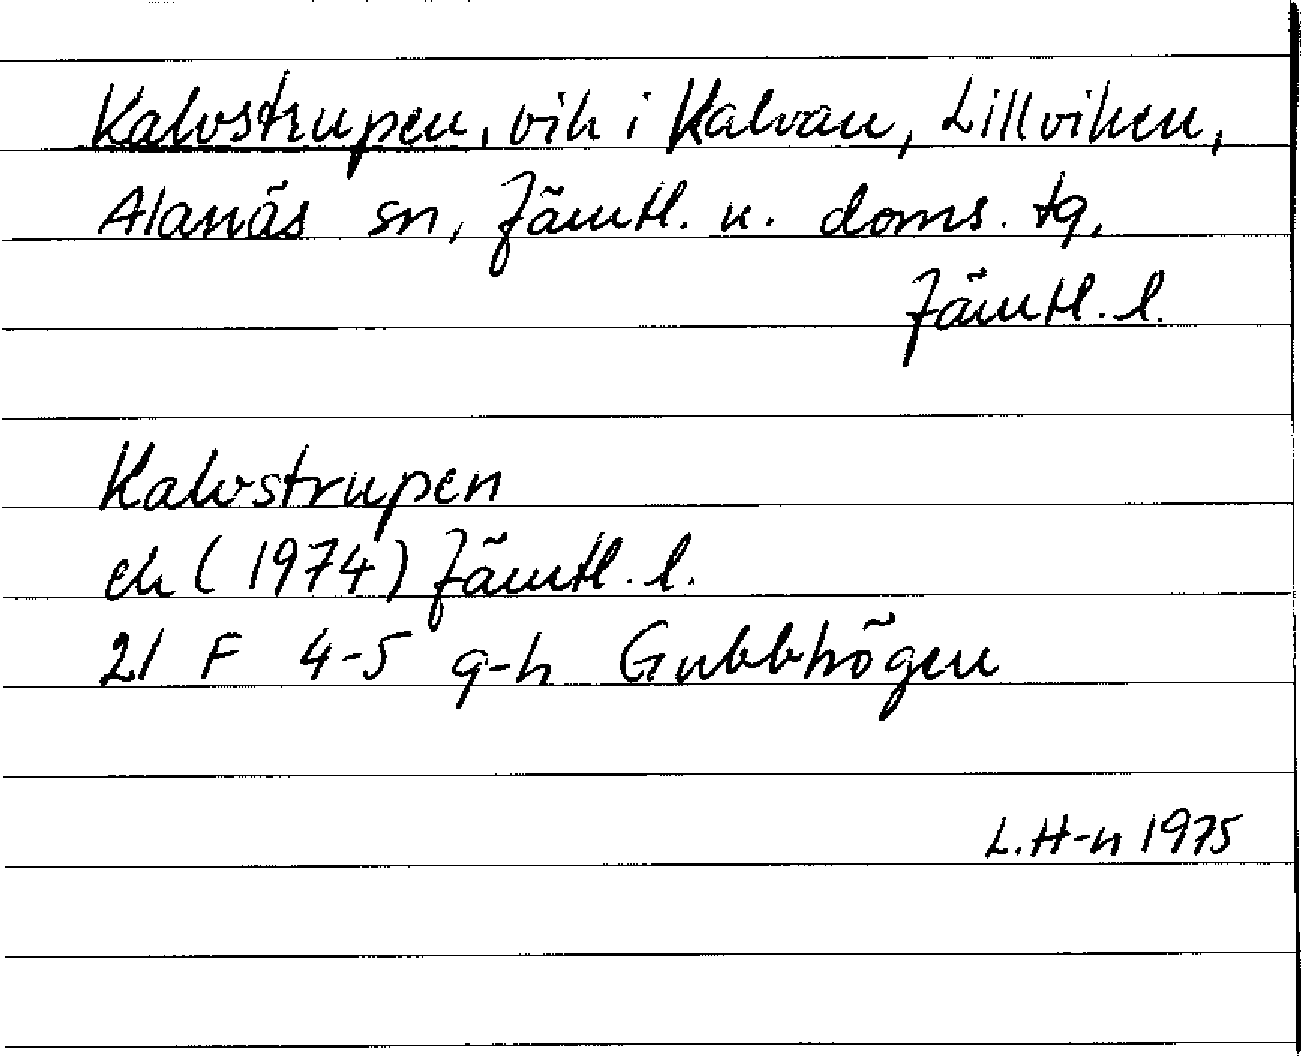 Kalvstrupen, vik i Kalvan, Lillviken,
Alanäs sn, Jämtl. n. doms. tg,
Jämtl. l.
Kalvstrupen
ek (1974) Jämtl. l.
21 F 4-5 g-h Gubbhögen
L.H-n 1975